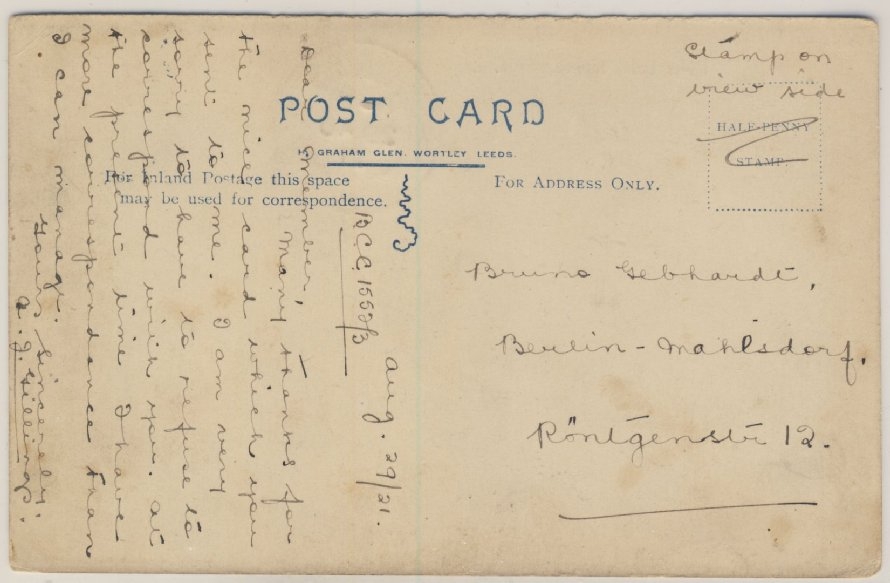 Stamp on
view side
POST CARD
HALF-PENNY
STAMP.
H. GRAHAM GLEN. WORTLEY LEEDS.
For Inland Postage this space
may be used for correspondence.
FOR ADDRESS ONLY.
Bruno Gebhardt,
Berlin-Mahlsdorf.
Röntgenstr 12.
Aug. 29/21.
BCC 1552/3
Dear member,
Many thanks for
the nice card which you
sent to me. I am very
sorry to have to refuse to
correspond with you. At
the present time I have
more correspondence than
I can manage.
Yours sincerely.